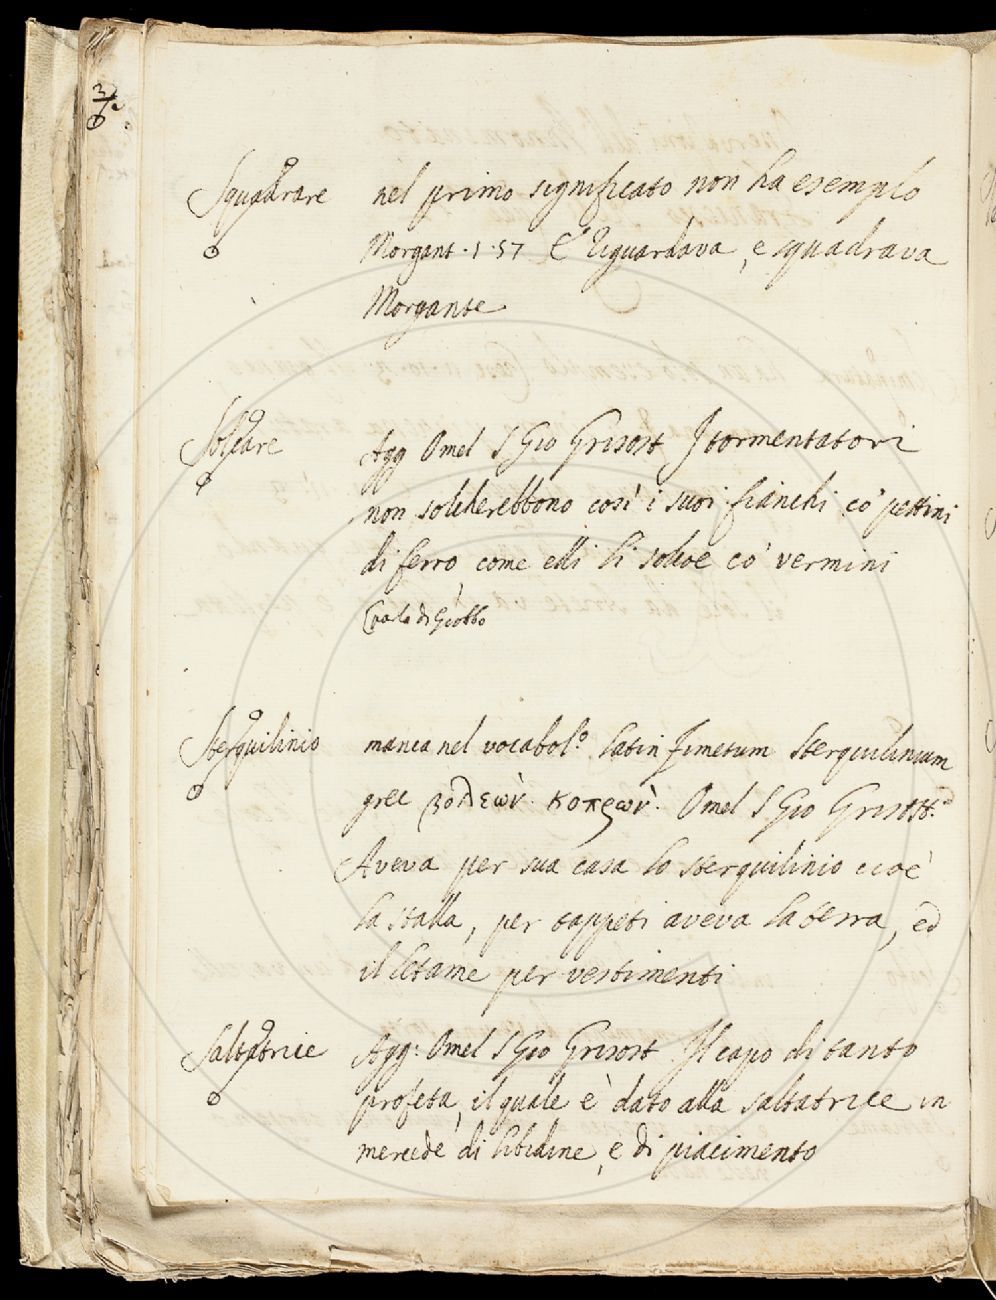 Squadrare nel primo significato non ha esempio
Morgant. 1. 57 E riguardava, e squadrava
Morgante
Solcare Agg Omel S Gio Grisost I tormentatori
non solcherebbono così i suoi fianchi co' pettini
di ferro, come elli li solcoe co' vermini
(parla di Giobbo
Sterquilinio manca nel vocabol.º latin fimetum sterquilinium
grec βολεών. κοπρών. Omel S Gio Grisost.
Aveva per sua casa lo sterquilinio cioè
la stalla, per tappeti aveva la terra, ed
il letame per vestimenti
Saltatrice Agg: Omel S Gio Grisost. Il capo di tanto
profeta, il quale è dato alla saltatrice in
mercede di libidine, e di piacimento